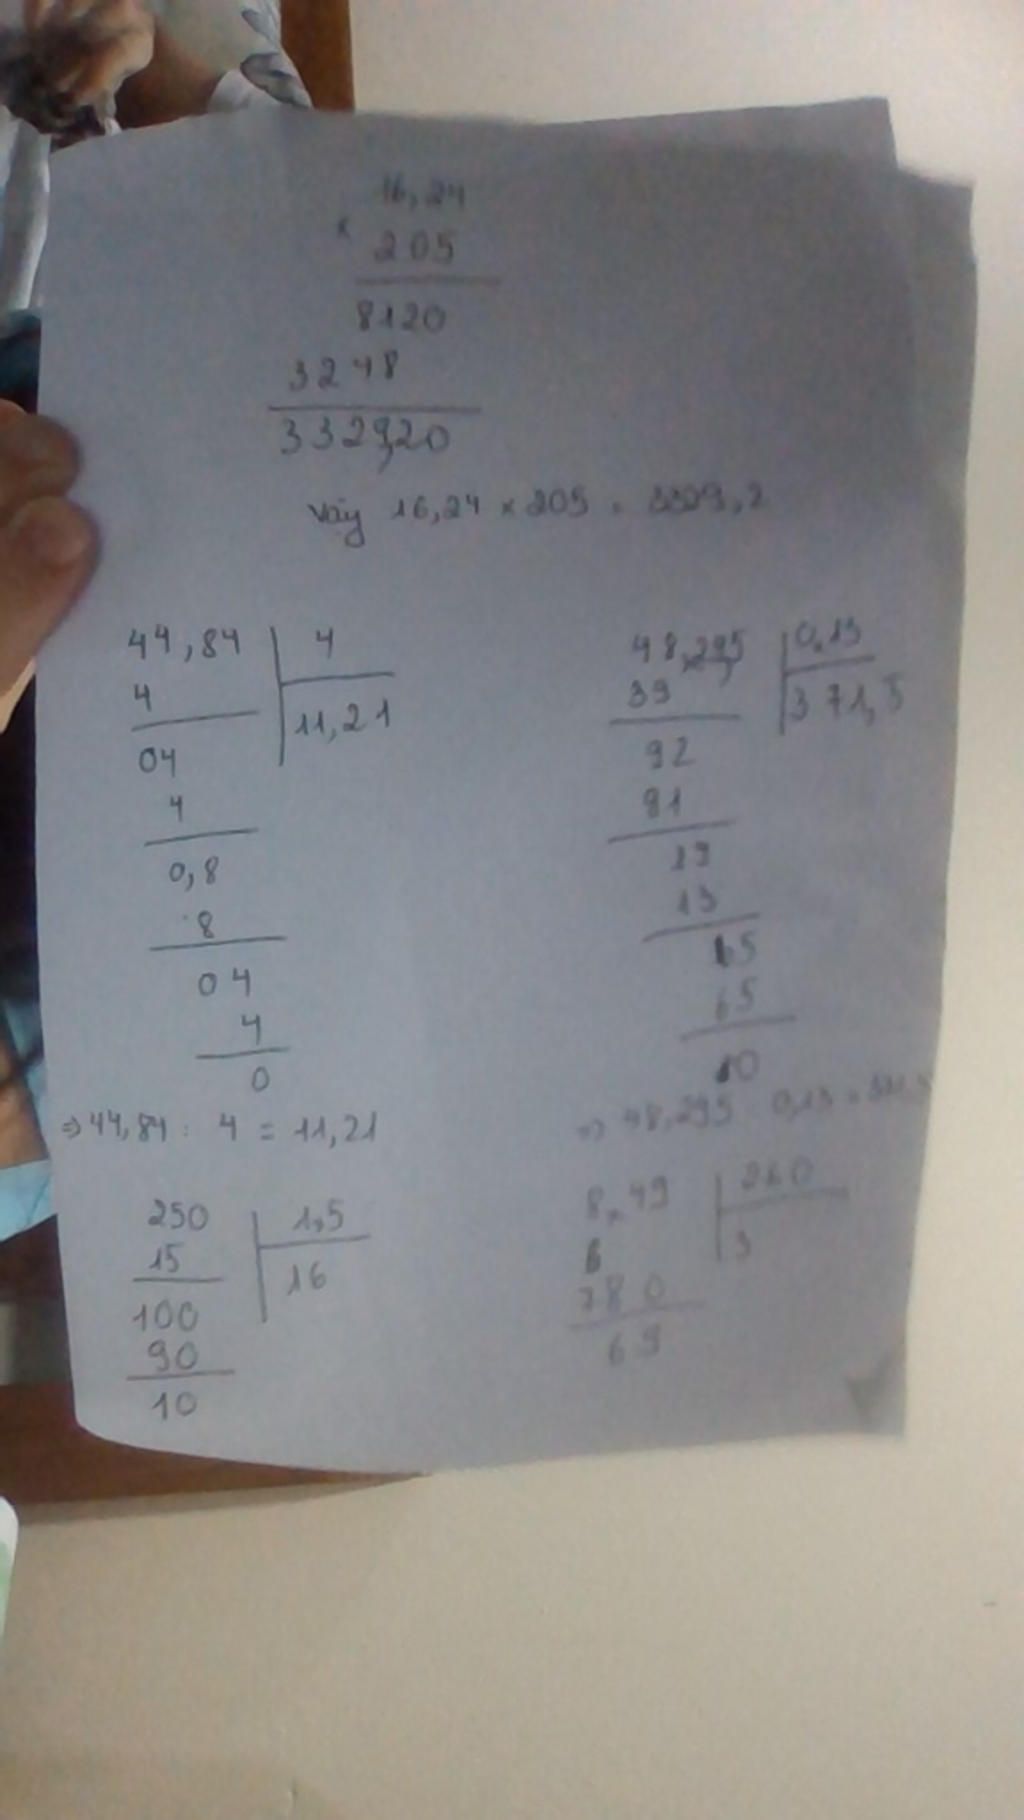 16,24
x
205
8120
3248
3329,20
Vậy 16,24 x 205 = 3329,2
44,84 4
4 11,21
04
4
0,8
8
04
4
0
⇒ 44,84 : 4 = 11,21
48,295 0,13
39 371,5
92
91
19
13
65
65
10
⇒ 48,295 0,13 =
250 1,5
15 16
100
90
10
8,49
6 3
780
69